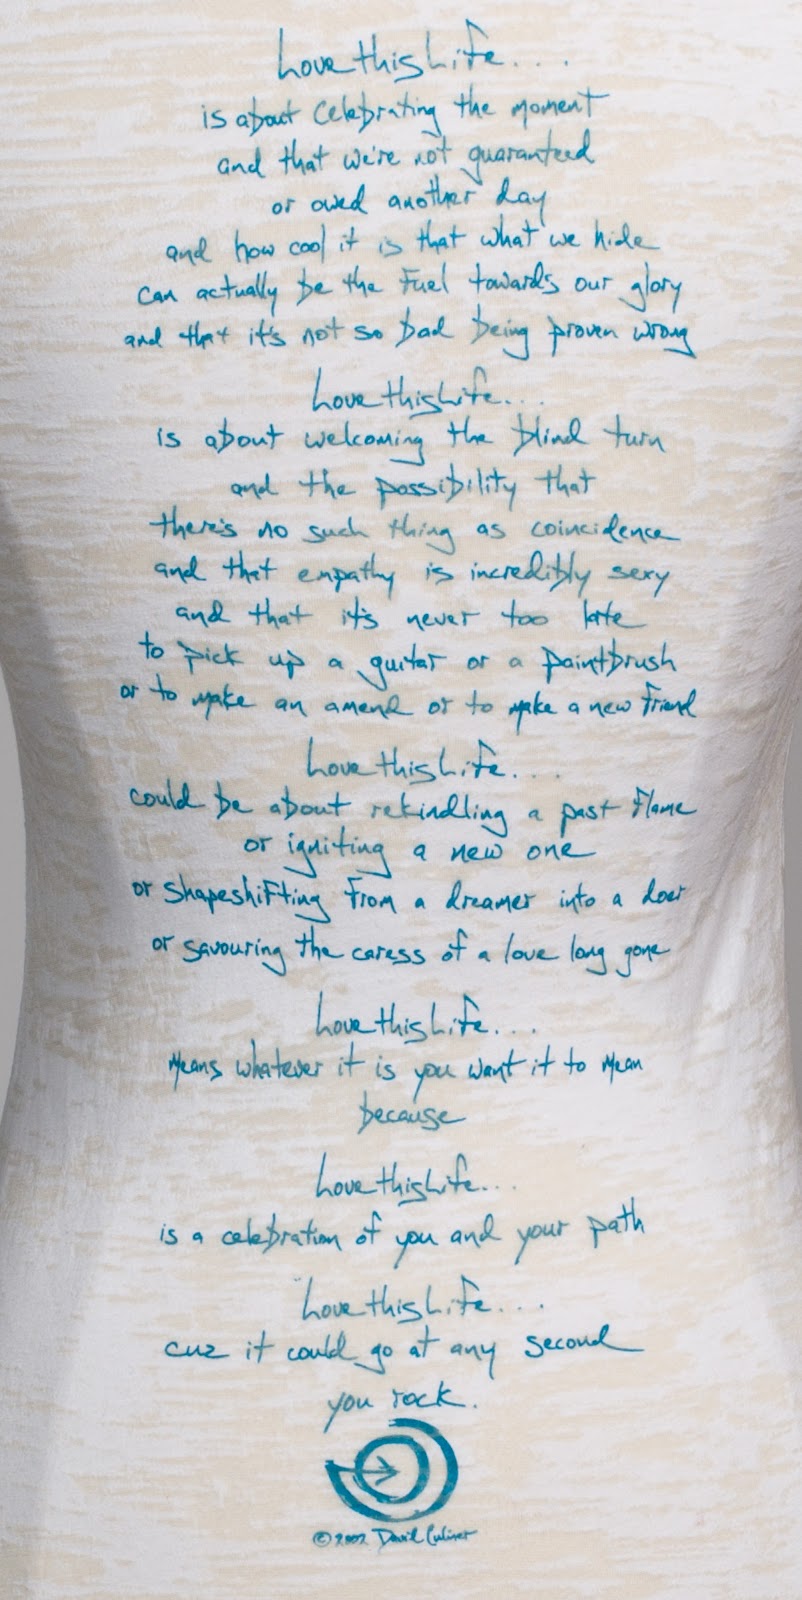 LoveThisLife...
is about celebrating the moment
and that we're not guaranteed
or owed another day
and how cool it is that what we hide
can actually be the fuel towards our glory
and that it's not so bad being proven wrong
LoveThisLife...
is about welcoming the blind turn
and the possibility that
there's no such thing as coincidence
and that empathy is incredibly sexy
and that it's never too late
to pick up a guitar or a paintbrush
or to make an amend or to make a new friend
LoveThisLife...
could be about rekindling a past flame
or igniting a new one
or shapeshifting from a dreamer into a doer
or savouring the caress of a love long gone
LoveThisLife...
Means whatever it is you want it to mean
because
LoveThisLife...
is a celebration of you and your path
LoveThisLife...
cuz it could go at any second
you rock.
©2002 David Culiner